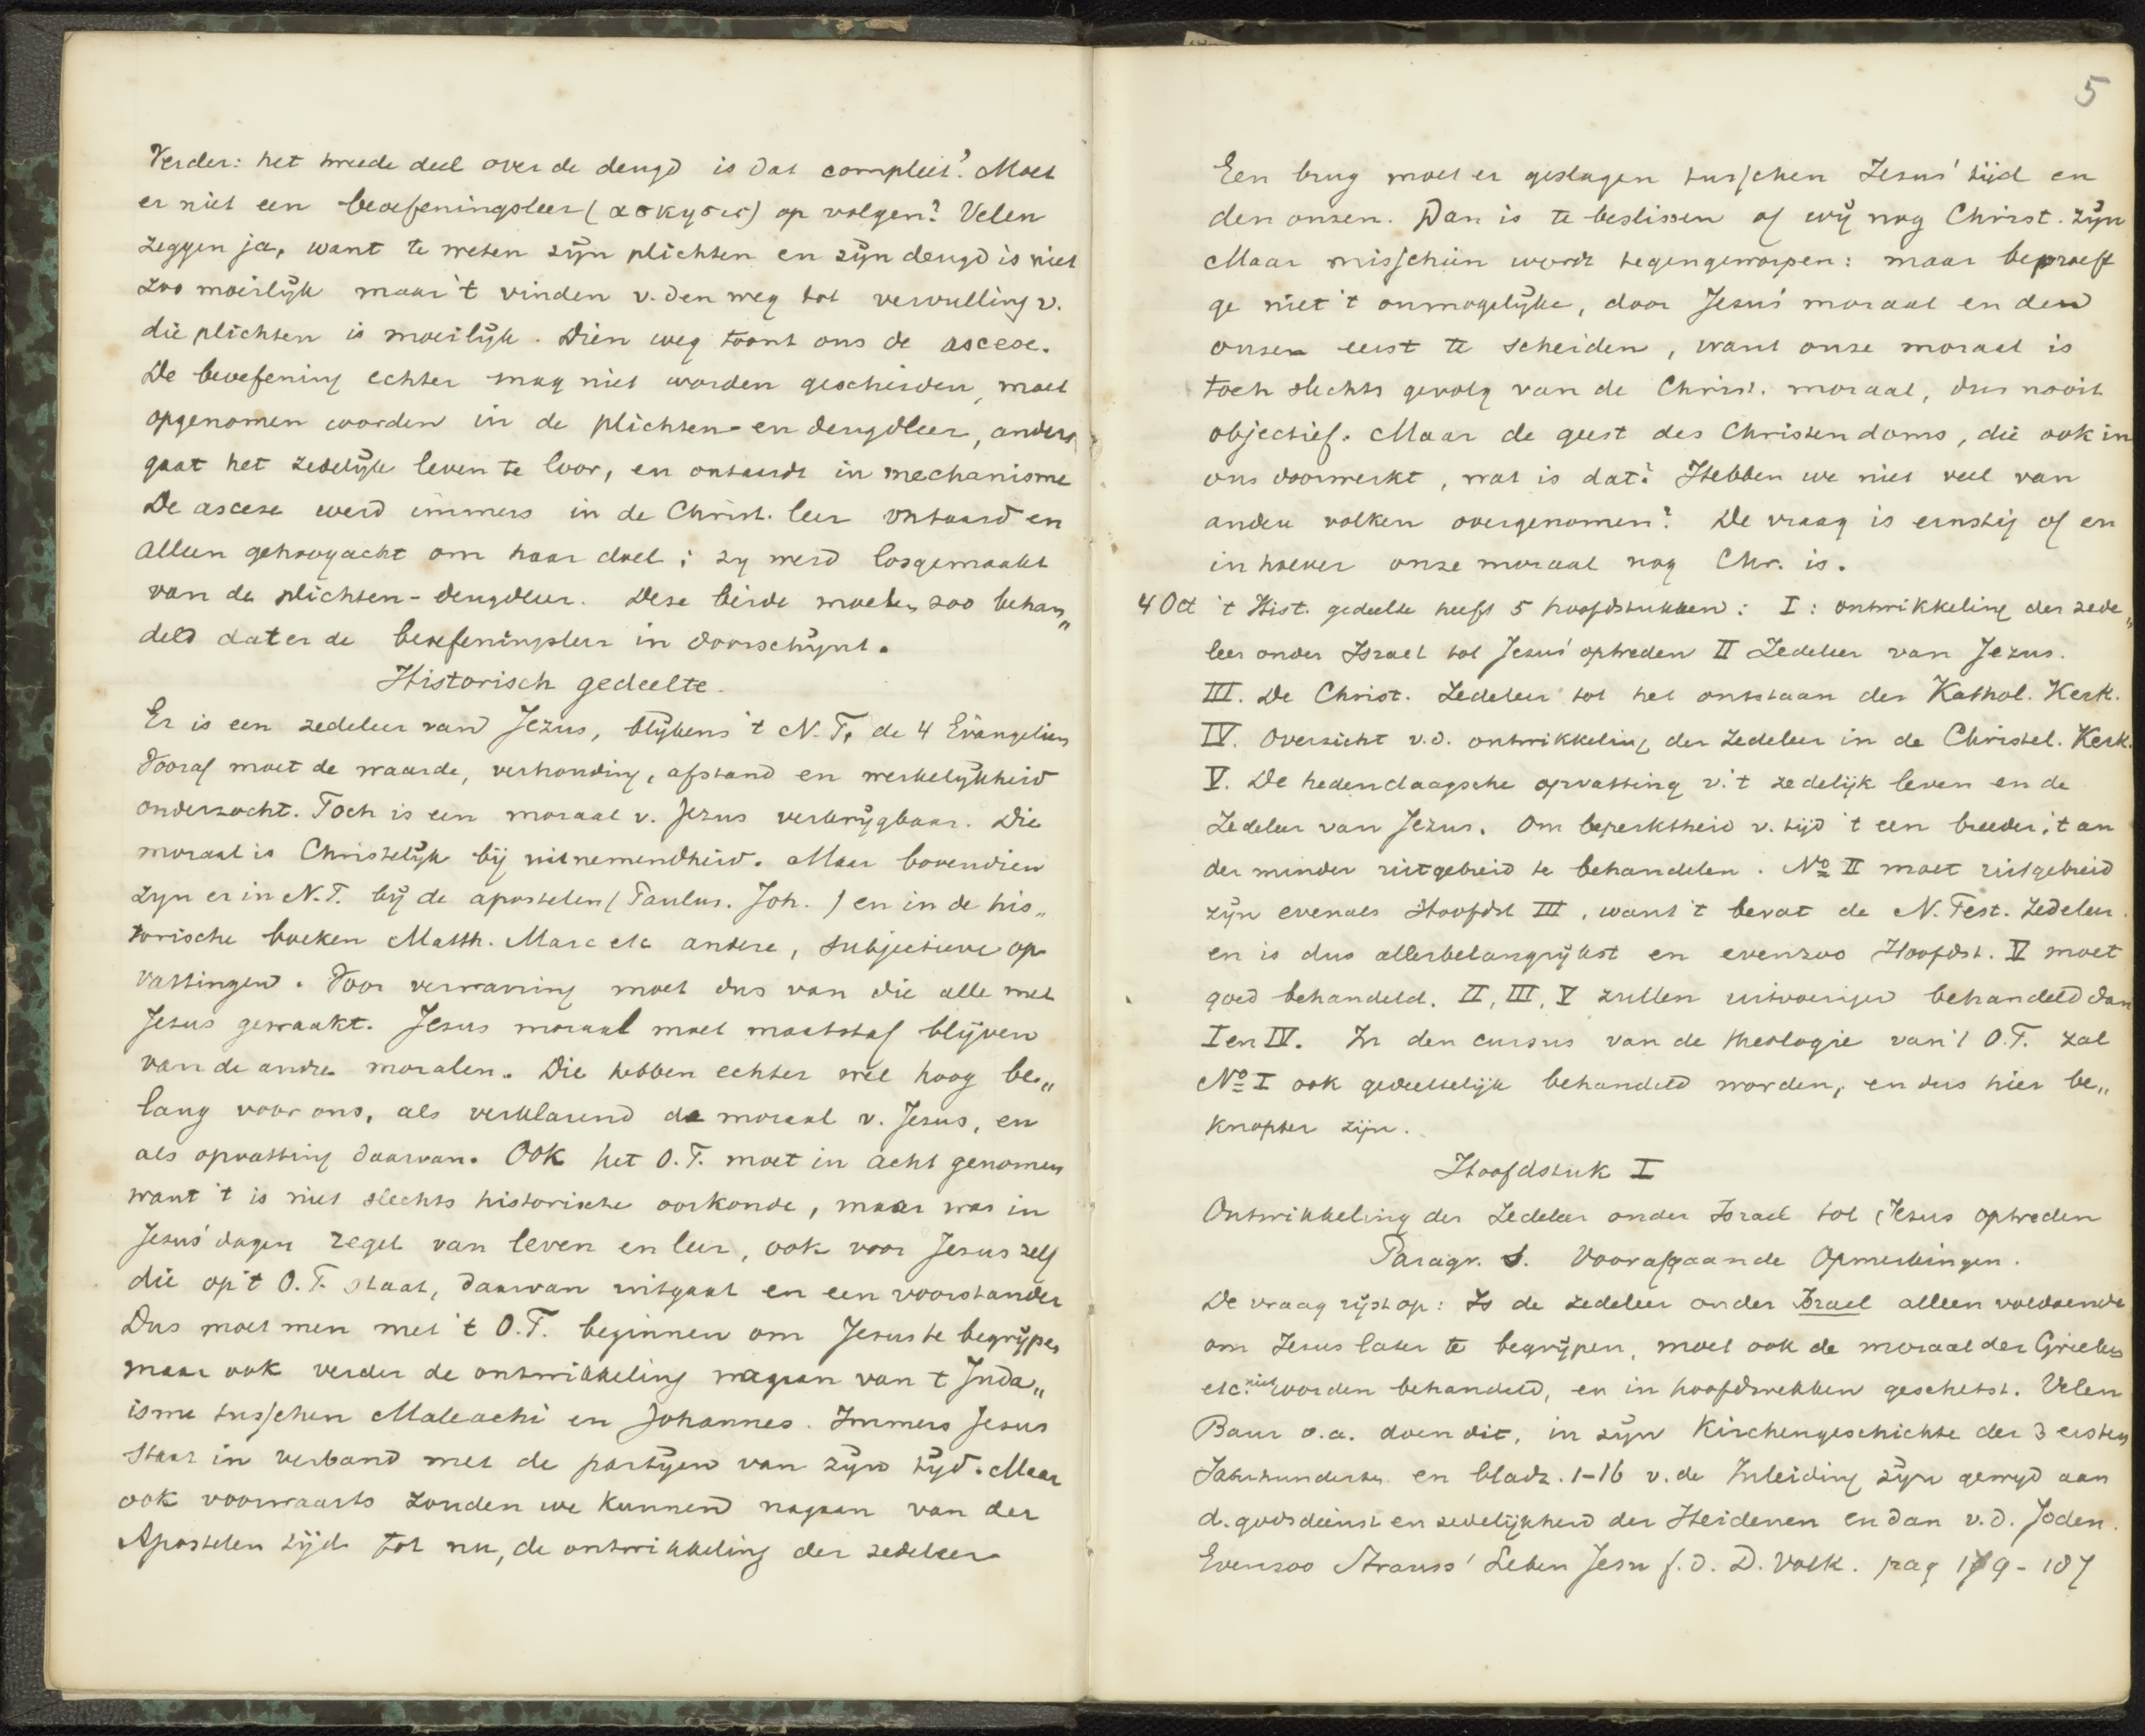 Verder: het tweede deel over de deugd is dat compleet? Moet
er niet een beoefeningsleer (ασκησις) op volgen? Velen
zeggen ja, want te weten zijn plichten en zijn deugd is niet
zoo moeilijk maar 't vinden v. den weg tot vervulling v.
die plichten is moeilijk. Dien weg toont ons de ascese.
De beoefening echter mag niet worden gescheiden, moet
opgenomen worden in de plichten- en deugdleer, anders
gaat het zedelijk leven te loor, en ontaardt in mechanisme
De ascese werd immers in de Christ. leer ontaard en
alleen gehoogacht om haar doel; zy werd losgemaakt
van de plichten-deugdleer. Deze beide moeten zoo behan„
deld dat er de beoefeningsleer in doorschijnt.
Historisch gedeelte.
Er is een zedeleer van Jezus, blijkens 't N.T. de 4 Evangelien
Vooraf moet de waarde, verhouding, afstand en werkelijkheid
onderzocht. Toch is een moraal v. Jezus verkrijgbaar. Die
moraal is Christelijk bij uitnemendheid. Maar bovendien
zyn er in N.T. bij de apostelen (Paulus. Joh.) en in de his„
torische boeken Matth. Marc etc andere, subjectieve op
vattingen. Voor verwarring moet dus van die alle met
Jesus gewaakt. Jesus moraal moet maatstaf blijven
van de andre moralen. Die hebben echter wel hoog be„
lang voor ons, als verklarend de moraal v. Jesus, en
als opvatting daarvan. Ook het O.T. moet in acht genomen
want 't is niet slechts historische oorkonde, maar was in
Jesus' dagen regel van leven en leer, ook voor Jesus zelf
die op 't O.T. staat, daarvan uitgaat en een voorstander
Dus moet men met 't O.T. beginnen om Jesus te begrijpen
maar ook verder de ontwikkeling nagaan van t Juda„
isme tusschen Maleachi en Johannes. Immers Jesus
staat in verband met de partijen van zijn tijd. Maar
ook voorwaarts zouden we kunnen nagaan van der
Apostelen tijd tot nu, de ontwikkeling der zedeleer
5
Een brug moet er geslagen tusschen Jesus' tijd en
den onzen. Dan is te beslissen of wij nog Christ. zijn
Maar misschien wordt tegengeworpen: maar beproeft
ge niet 't onmogelijke, door Jesus' moraal en den
onzen eerst te scheiden, want onze moraal is
toch slechts gevolg van de Christ. moraal, dus nooit
objectief. Maar de geest des Christendoms, die ook in
ons doorwerkt, wat is dat? Hebben we niet veel van
andere volken overgenomen? De vraag is ernstig of en
in hoever onze moraal nog Chr. is.
4 Oct 't Hist. gedeelte heeft 5 hoofdstukken: I: ontwikkeling der zede„
leer onder Israel tot Jesus' optreden II Zedeleer van Jezus.
III. De Christ. Zedeleer tot het ontstaan der Kathol. Kerk.
IV. Overzicht v.d. ontwikkeling der Zedeleer in de Christel. Kerk.
V. De hedendaagsche opvatting v. 't zedelijk leven en de
Zedeleer van Jezus. Om beperktheid v. tijd 't een breeder, 't an
der minder uitgebreid te behandelen. No II moet uitgebreid
zijn evenals Hoofdst III, want 't bevat de N. Test. Zedeleer.
en is dus allerbelangrijkst en evenzoo Hoofdst. V moet
goed behandeld. II, III, V zullen uitvoeriger behandeld dan
I en IV. In den cursus van de theologie van 't O.T. zal
No I ook gedeeltelijk behandeld worden, en dus hier be„
knopter zijn.
Hoofdstuk I
Ontwikkeling der Zedeleer onder Israel tot Jesus optreden
Paragr. 1. Voorafgaande Opmerkingen.
De vraag rijst op: Is de zedeleer onder Israel alleen voldoende
om Jesus later te begrijpen, moet ook de moraal der Grieken
etc. niet worden behandeld, en in hoofdtrekken geschetst. Velen
Baur o.a. doen dit, in zijn Kirchengeschichte der 3 ersten
Jahrhunderten en bladz. 1-16 v. de Inleiding zijn gewijd aan
d. godsdienst en zedelijkheid der Heidenen en dan v.d. Joden.
Evenzoo Strauss' Leben Jesu f. d. D. Volk. pag 179-187